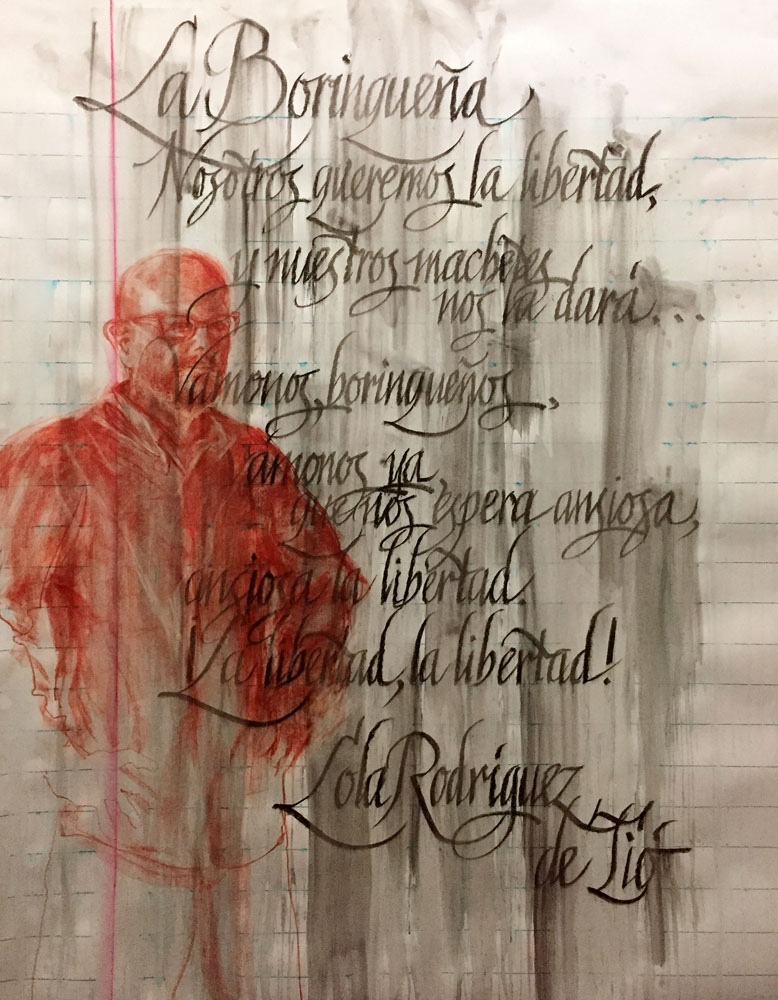 La Borinqueña
Nosotros queremos la libertad,
y nuestros machetes
nos la dará...
Vámonos, borinqueños,
vámonos ya,
que nos espera ansiosa,
ansiosa la libertad.
La libertad, la libertad!
Lola Rodríguez
de Tió